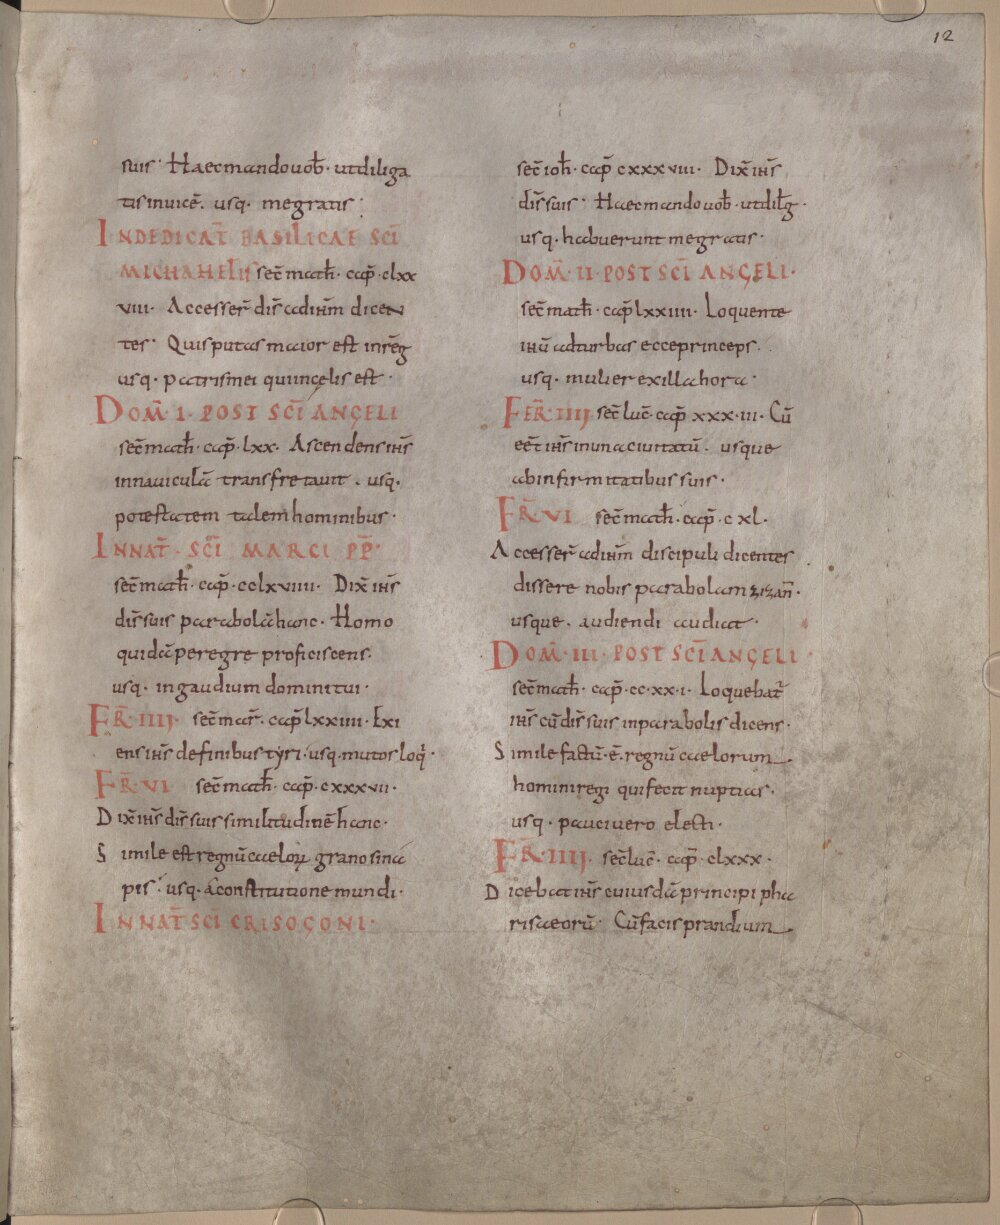 12
suis· Haec mando uob̄· ut diliga
tis inuicē. usq· me gratis:
IN DEDICAT̄ BASILICAE SC̄I
MICHAHELIS sec̄ math̄· cap̄· clxx
viii· Accesser̄ dis̄ ad ih̄m dicen
tes· Quis putas maior est in reḡ
usq· patris mei qui in cęlis est·
DOM̄· I· POST SC̄I ANGELI
sec̄ math̄· cap̄· lxx· Ascendens ih̄s
in nauiculā transfretauit. usq·
potestatem talem hominibus·
IN NAT̄· SC̄I MARCI PP̄·
sec̄ math̄· cap̄· cclxviiii· Dix̄ ih̄s
dis̄ suis parabolā hanc· Homo
quidā peregre proficiscens.
usq· in gaudium domini tui·
FR̄· IIII· sec̄ mar̄· cap̄ lxxiiii· Exi
ens ih̄s de finibus tyri· usq· mutos loq̄·
FR̄· VI sec̄ math̄· cap̄· cxxxvii·
Dix̄ ih̄s dis̄ suis similitudinē hanc·
Simile est regnū caeloꝝ grano sina
pis· usq· a constitutione mundi·
IN NAT̄ SC̄I CRISOGONI·
sec̄ ioh̄· cap̄ cxxxviii· Dix̄ ih̄s
dis̄ suis· Haec mando uob̄· ut dilīg·
usq· habuerunt me gratis·
DOM̄· II· POST SC̄I ANGELI·
sec̄ math̄· cap̄ lxxiiii· Loquente
ihū ad turbas ecce princeps.
usq· mulier ex illa hora·
FER̄· IIII sec̄ luc̄· cap̄ xxx·iii· Cū
eēt ih̄s in una ciuitatū· usque
ab infirmitatibus suis·
FR̄· VI sec̄ math̄· cap̄· cxl·
Accesser̄ ad ih̄m discipuli dicentes
dissere nobis parabolam zizan̄·
usque· audiendi audiat·
DOM̄· III· POST SC̄I ANGELI
sec̄ math̄· cap̄· cc·xx·i· Loquebat̄
ih̄s cū dis̄ suis in parabolis dicens·
Simile factū·ē· regnū caelorum.
homini regi qui fecit nuptias·
usq· pauci uero electi·
FR̄· IIII· sec̄ luc̄· cap̄· clxxx·
Dicebat ih̄s cuiusdā principi pha
risaeorū· Cū facis prandium.